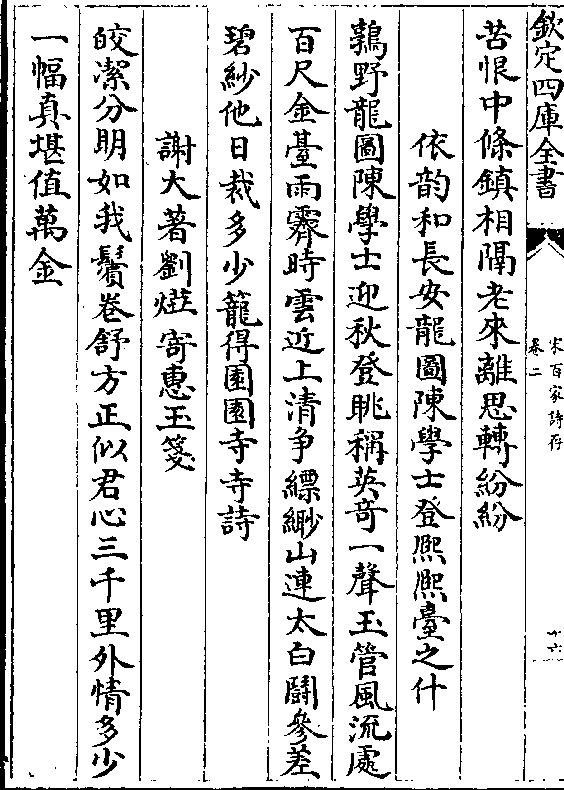 欽定四庫全書
宋百家詩存
卷二
十六
苦恨中條鎮相隔老來離思轉紛紛
依韵和長安龍圖陳學士登熈熈臺之什
鶉野龍圖陳學士迎秋登眺稱英竒一聲玉管風流處
百尺金臺雨霽時雲近上清争縹緲山連太白鬬參差
碧紗他日裁多少籠得園園寺寺詩
謝大著劉㷍寄惠玉箋
皎潔分明如我鬢卷舒方正似君心三千里外情多少
一幅真堪值萬金